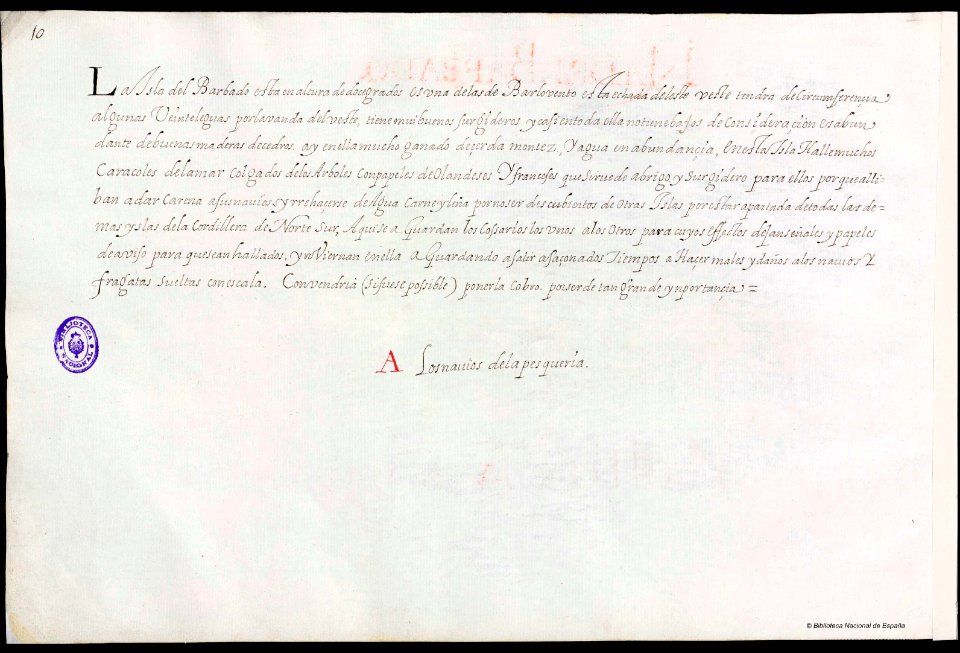 10
La Isla del Barbado esta en altura de doce grados es una delas de Barlovento esta echada del este veste tendra de Circumferençia
algunas Veinte leguas por lavanda del veste, tiene mui buenos surgideros, y casi en toda ella no tiene bajos de Consideración es abun
dante de buenas maderas de cedros. ay en ella mucho ganado de çerda montez, Y agua en abundançia, En esta Isla Halle muchos
Caracoles dela mar Colgados delos Arboles Con papeles de Olandeses Y franceses que sirue de abrigo, y Surgidero para ellos porque alli
ban a dar Carena a sus nauios, y rrehaçerse de Agua Carne y leña por no ser descubientos de Otras Islas por estar apartada de todas las de=
mas yslas dela Cordillera de Norte Sur, Aqui se a Guardan los Cossarios los Vnos a los Otros para cuyos effectos dejan señales y papeles
de aviso para que sean hallados, ynViernan en ella a Guardando a salir a façonados Tiempos a Haçer males y daños alos nauios Y
fragatas sueltas con escala. Convendria (si fuese possible) ponerla Cobro. por ser de tan grande ynportançia =
BIBLIOTECA NACIONAL
A Los nauios dela pesqueria.
© Biblioteca Nacional de España